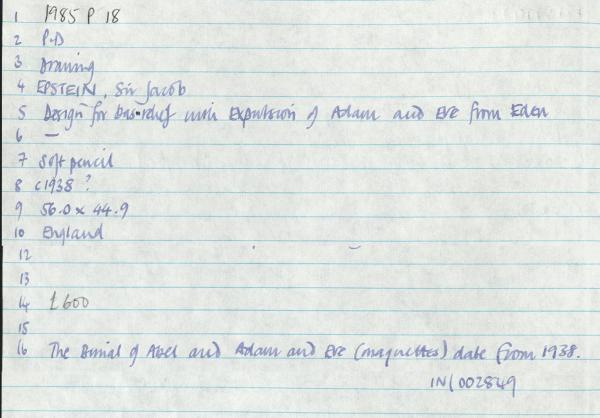 1 1985 P 18
2 P.D
3 Drawing
4 EPSTEIN, Sir Jacob
5 Design for bas-relief with Expulsion of Adam and Eve from Eden
6 —
7 Soft pencil
8 c1938 ?
9 56.0 x 44.9
10 England
12
13
14 £600
15
16 The Burial of Abel and Adam and Eve (maquettes) date from 1938.
IN/002849